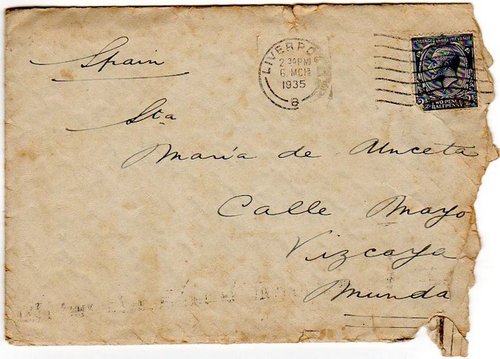 Spain
LIVERPOOL
2 30 PM
6 MCH
1935
8
POSTAGE REVENUE
TWO PENCE
HALFPENNY
Sta
María de Unceta
Calle Mayo
Vizcaya
Munda